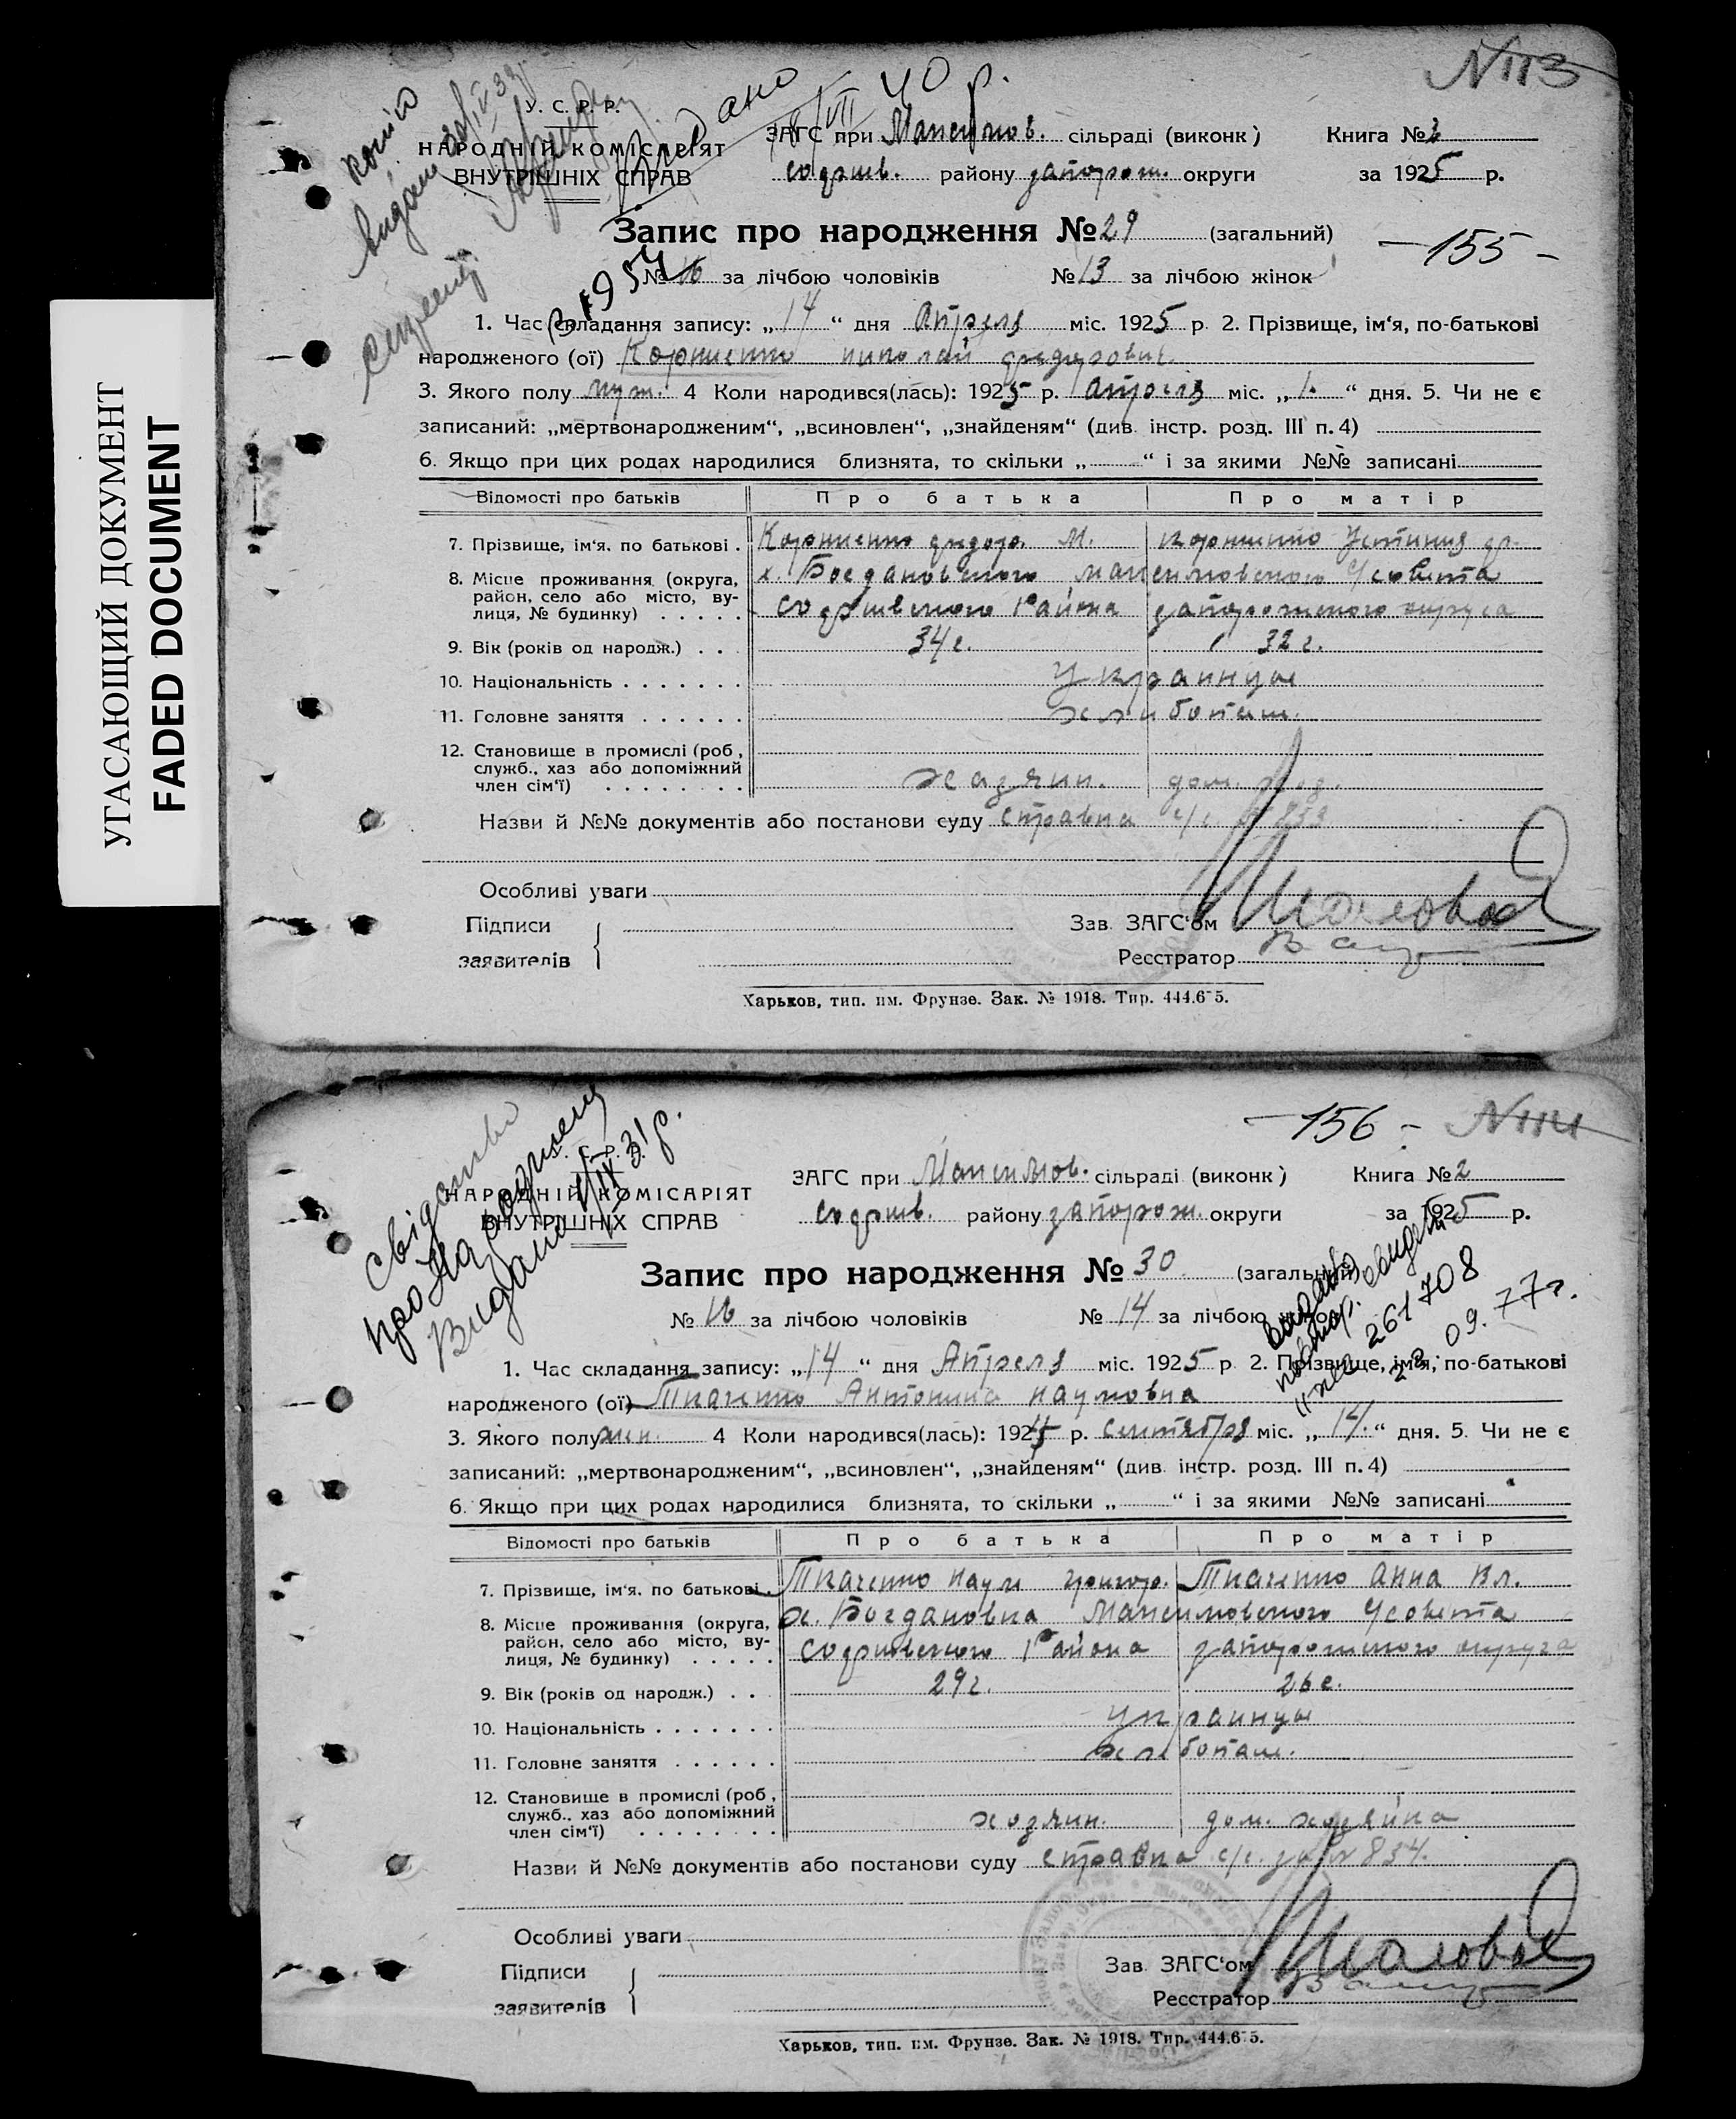 УГАСАЮЩИЙ ДОКУМЕНТ
FADED DOCUMENT
N113
копію
видано
У. С. Р. Р.
НАРОДНІЙ КОМІСАРІЯТ
ВНУТРІШНІХ СПРАВ
40 р.
ЗАГС при Максимов. сільраді (виконк) Книга № 2
софиев. району запорож. округи за 1925 р.
Запис про народження № 29 (загальний)
— 155 —
№ 16 за лічбою чоловіків № 13 за лічбою жінок
1. Час складання запису: „ 14 “ дня Апреля міс. 1925 р 2. Прізвище, ім‘я, по-батькові
народженого (ої) Корниенко николай
3. Якого полу муж. 4 Коли народився(лась): 1925 р. апреля міс. „ 1. “ дня. 5. Чи не є
записаний: „мертвонародженим“, „всиновлен“, „знайденям“ (див. інстр. розд. III п. 4)
6. Якщо при цих родах народилися близнята, то скільки „ “ і за якими №№ записані
Відомості про батьків Про батька Про матір
7. Прізвище, ім‘я. по батькові . Корниенко М. корниенко Устиния
8. Місце проживання (округа, х. Богдановского максимовского с/совета
район, село або місто, ву- софиевского Района запорожского округа
лиця, № будинку) . . . . .
9. Вік (років од народж.) . . . 34 г. 32 г.
10. Національність . . . . . . . украинцы
11. Головне заняття . . . . . . хлибопаш.
12. Становище в промислі (роб,
служб., хаз або допоміжний хазяин. дом.
член сім‘ї) . . . . . . . .
Назви й №№ документів або постанови суду справка с/с 833
Особливі уваги
Підписи Зав. ЗАГС‘ом
заявителів Реєстратор
Харьков, тип. им. Фрунзе. Зак. № 1918. Тир. 444.675.
— 156 — N114
Свідоцтво
про народження
Видано
IX 31 р.
С. Р. Р.
НАРОДНІЙ КОМІСАРІЯТ
ВНУТРІШНІХ СПРАВ
ЗАГС при Максимов. сільраді (виконк) Книга № 2
софиев. району запорож. округи за 1925 р.
Запис про народження № 30 (загальний)
№ 16 за лічбою чоловіків № 14 за лічбою жінок
выдано
повтор. свидет
261708
22. 09. 77 г.
1. Час складання запису: „ 14 “ дня Апреля міс. 1925 р 2. Прізвище, ім‘я, по-батькові
народженого (ої) Ткаченко Антонина наумовна
3. Якого полу жен. 4 Коли народився(лась): 192 р. сентября міс. „ 14. “ дня. 5. Чи не є
записаний: „мертвонародженим“, „всиновлен“, „знайденям“ (див. інстр. розд. III п. 4)
6. Якщо при цих родах народилися близнята, то скільки „ “ і за якими №№ записані
Відомості про батьків Про батька Про матір
7. Прізвище, ім‘я. по батькові . Ткаченко наум григор. Ткаченко анна вл.
8. Місце проживання (округа, х. Богдановка максимовского с/совета
район, село або місто, ву- софиевского Района запорожского округа
лиця, № будинку) . . . . .
9. Вік (років од народж.) . . . 29 г. 26 г.
10. Національність . . . . . . . украинцы
11. Головне заняття . . . . . . хлибопаш.
12. Становище в промислі (роб,
служб., хаз або допоміжний хозяин. дом. хозяйка
член сім‘ї) . . . . . . . .
Назви й №№ документів або постанови суду справка с/с. за № 834.
Особливі уваги
Підписи Зав. ЗАГС‘ом
заявителів Реєстратор
Харьков, тип. им. Фрунзе. Зак. № 1918. Тир. 444.675.